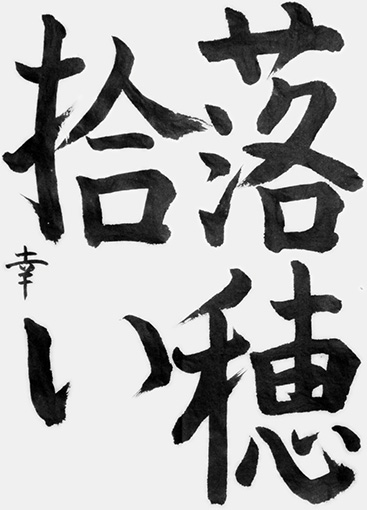 落穂
拾い
幸